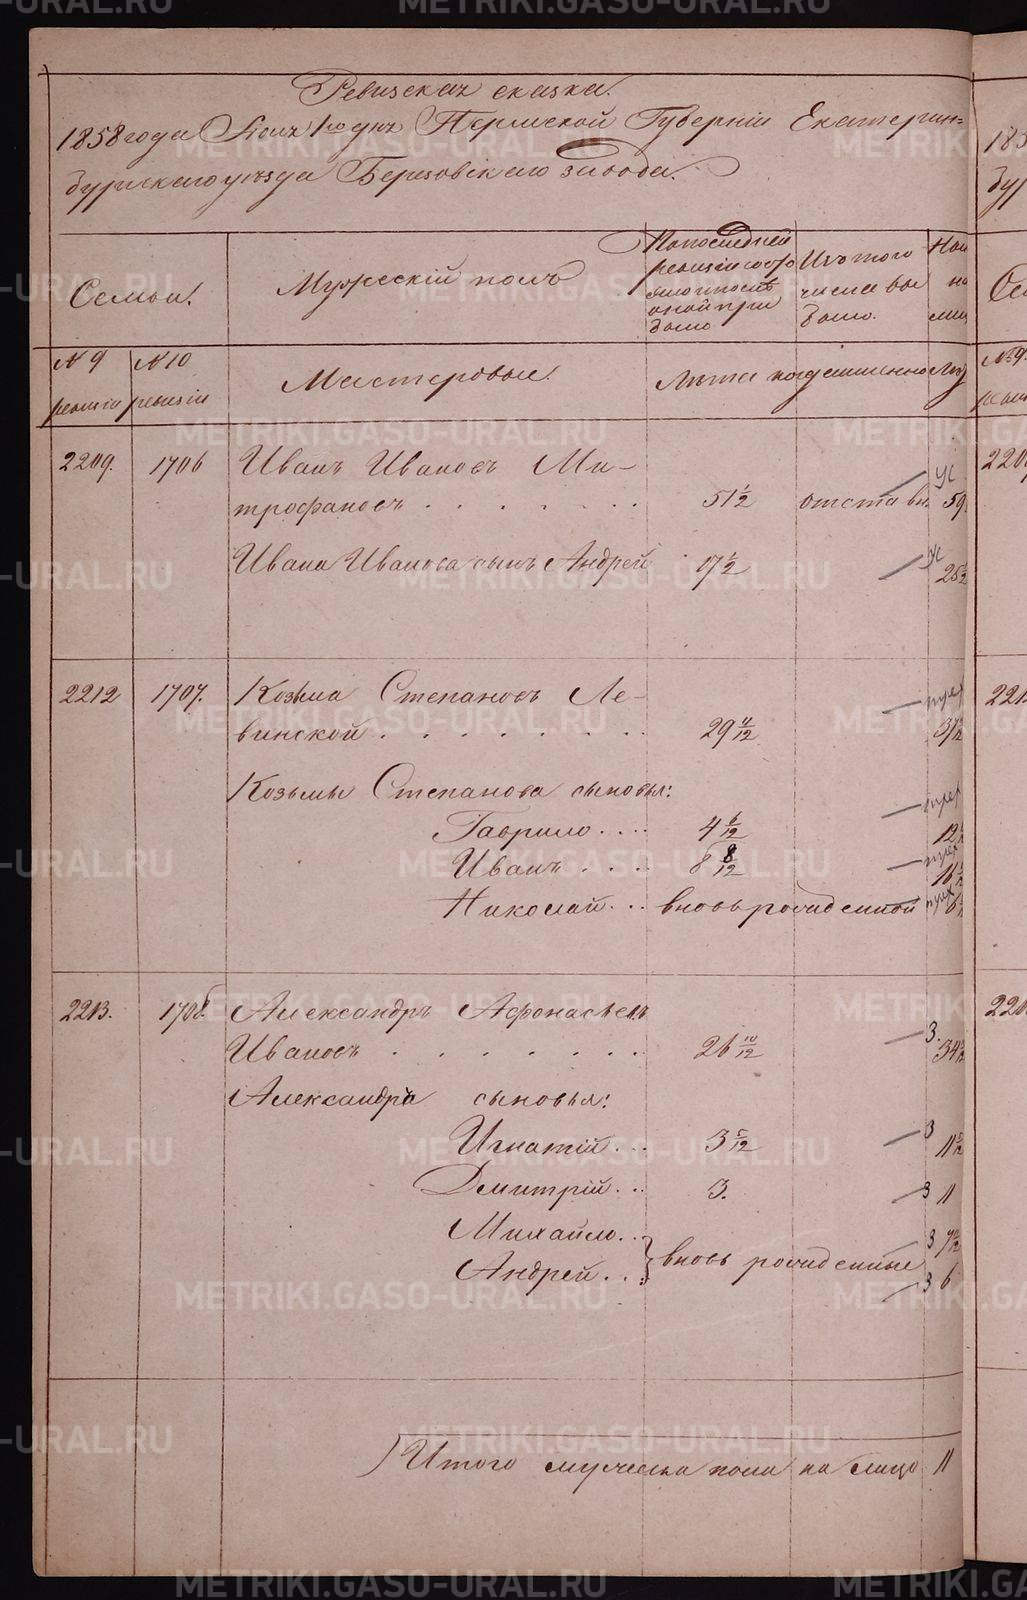 Ревизская сказка.
1858 года Июня 1го дня Пермской Губернiи Екатерин=
бургскаго уѣзда Березовскаго завода.
Семьи.
Мужескiй полъ
По последней
ревизiи состо
яло и послѣ
оной при
было
Изъ того
числа вы
было.
Ныне
на
лицо
№ 9
ревизiи
№ 10
ревизiи
Мастеровые.
Лѣта
когда именно
Лѣта
2209. 1706 Иванъ Ивановъ Ми-
трофановъ . . . . . . . 51 1/2 отставн. 59
Ивана Иванова сынъ Андрей 17 1/2 25 1/2
2212 1707. Козьма Степановъ Ле-
винской . . . . . . . . 29 4/12
Козьмы Степанова сыновья:
Гаврило . . . . 4 6/12
Иванъ . . . . 8 8/12
Николай . . . вновь рожденной
2213. 1708. Александръ Афонасьевъ
Ивановъ . . . . . . . 26 10/12 3. 34
Александра сыновья:
Игнатiй . . . 3 5/12 3 11 5/12
Дмитрiй . . . 3. 3 11
Михайло . . 3
Андрей . . } вновь рожденные 3 6
Итого мужеска пола на лицо 11
2209
221
220
METRIKI.GASO-URAL.RU